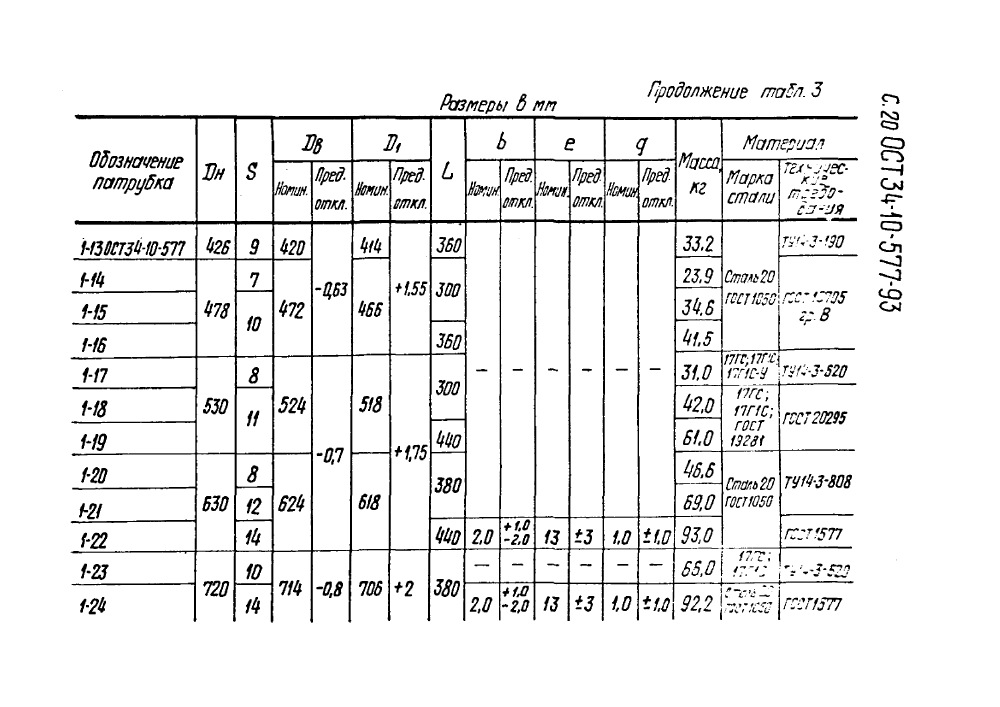 Продолжение табл. 3
Размеры в мм
С.20 ОСТ 34-10-577-93
Обозначение патрубка Dн S Dв D1 L b e q Масса, кг Материал
Номин. Пред. откл. Номин. Пред. откл. Номин. Пред. откл. Номин. Пред. откл. Номин. Пред. откл. Марка стали Техничес-кие требо-вания
1-13 ОСТ34-10-577 426 9 420 -0,63 414 +1,55 360 — — — — — — 33,2 Сталь 20 ГОСТ 1050 ТУ14-3-190
1-14 478 7 472 466 300 23,9 гр. В
1-15 10 34,6
1-16 360 41,5
1-17 530 8 524 -0,7 518 +1,75 300 31,0 17ГС; 17Г1С 17Г1С-У ТУ14-3-520
1-18 11 42,0 17ГС; 17Г1С; ГОСТ 19281 ГОСТ 20295
1-19 440 61,0
1-20 630 8 624 618 380 46,6 Сталь 20 ГОСТ1050 ТУ14-3-808
1-21 12 69,0
1-22 14 440 2,0 +1,0 -2,0 13 ±3 1,0 ±1,0 93,0 ГОСТ1577
1-23 720 10 714 -0,8 706 +2 380 — — — — — — 66,0
1-24 14 2,0 +1,0 -2,0 13 ±3 1,0 ±1,0 92,2 ГОСТ1577